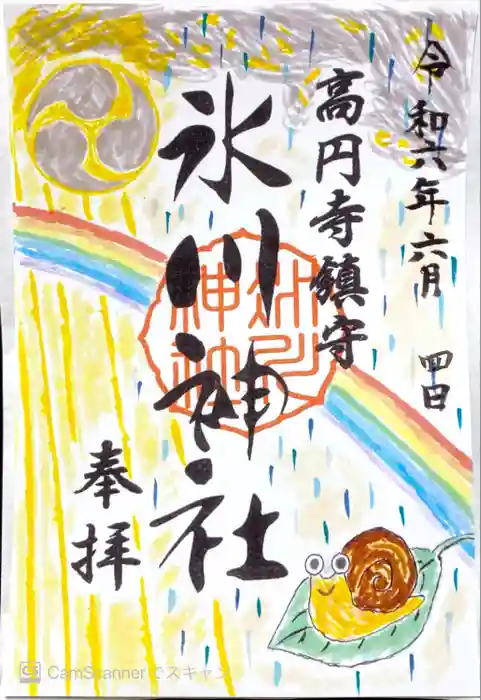 令和六年六月 四日
高円寺鎮守
氷川神社
奉拝
CS CamScanner でスキャン